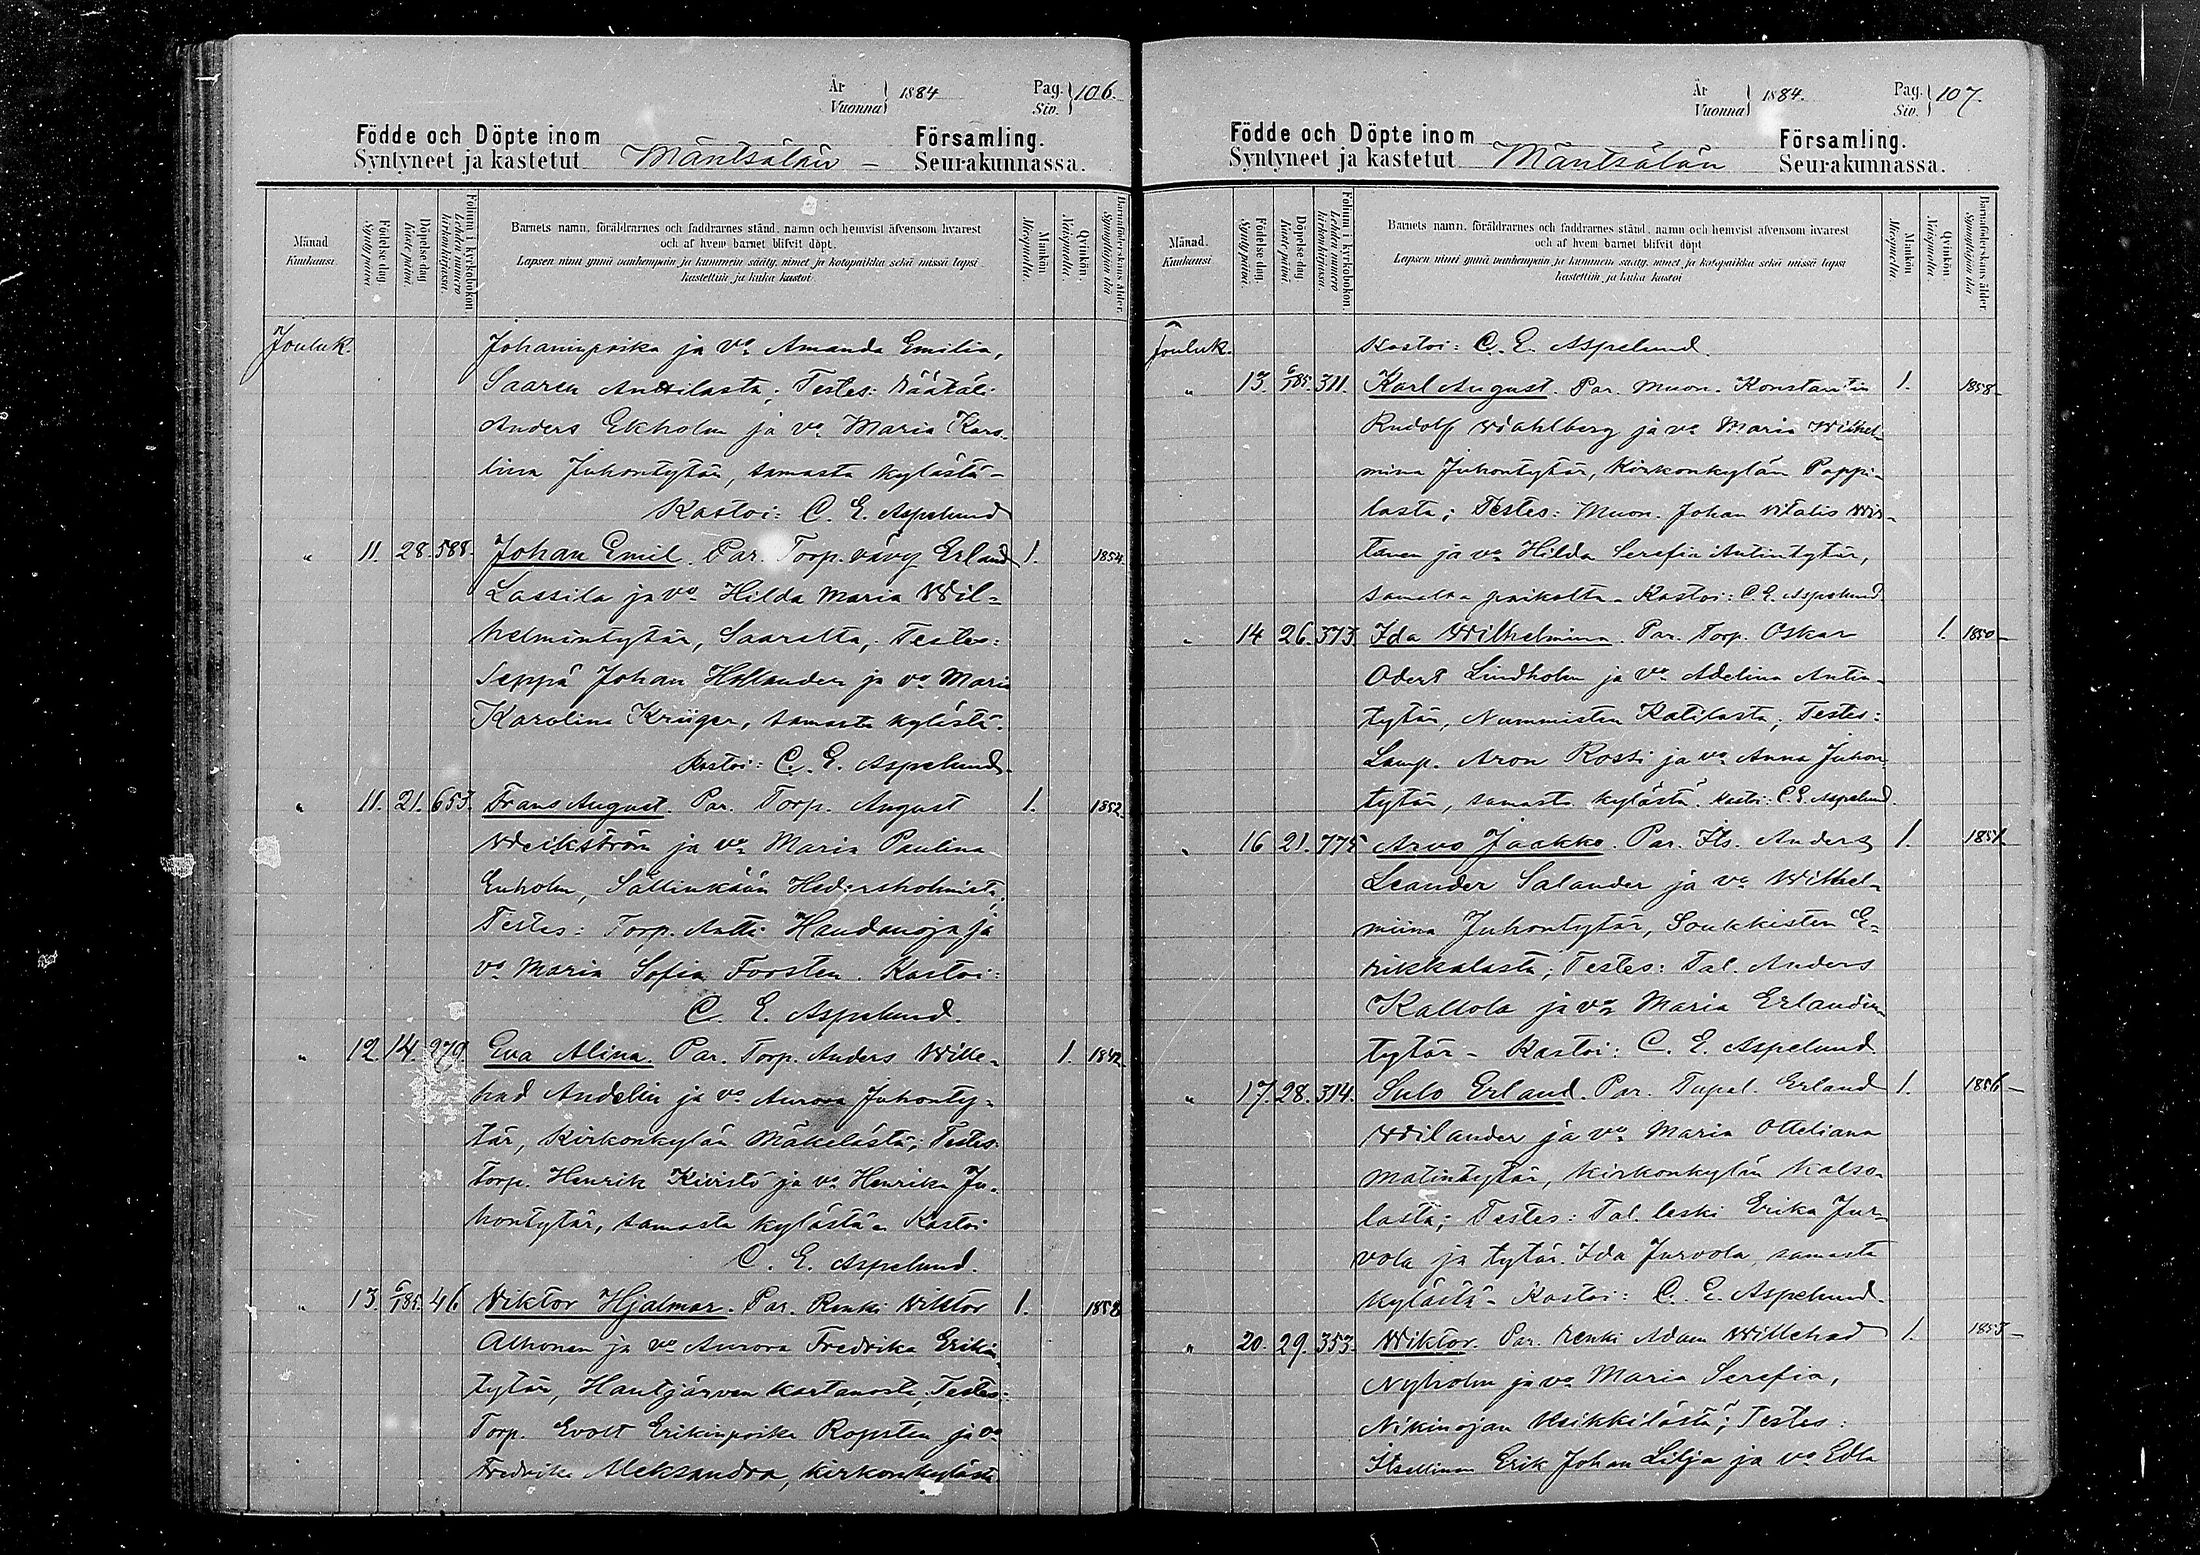 År Vuonna } 1884 Pag. Siv. } 106.
Födde och Döpte inom Församling.
Syntyneet ja kastetut Mäntsälän – Seurakunnassa.
Månad Kuukausi.
Födelse dag. Syntypäivä.
Döpelse dag Kastepäivä
Folium i kyrkoboken. Lehden numero kirkonkirjassa.
Barnets namn, föräldrarnes och faddrarnes stånd, namn och hemvist äfvensom hvarest
och af hvem barnet blifvit döpt.
Lapsen nimi ynnä vanhempain ja kummein sääty, nimet ja kotopaikka sekä missä lapsi
kastettiin ja kuka kastoi.
Mankön Miespuolta.
Qvinkön. Vaispuolta.
Barnaföderskans ålder. Synnyttäjän ikä
Jouluk. Johaninpoika ja vo Amanda Emilia,
Saaren Anttilasta; Testes: Räätäli
Anders Ekholm ja vo Maria Karo-
lina Juhontytär, samasta kylästä –
Kastoi: C. E. Aspelund
" 11. 28. 588. Johan Emil. Par. Torp. vävy Erland 1. 1854
Lassila ja vo Hilda Maria Wil-
helmintytär, Saarelta; Testes:
Seppä Johan Hollander ja vo Maria
Karolina Krüger, samasta kylästä.
Kastoi: C. E. Aspelund.
" 11. 21. 653. Frans August. Par. Torp. August 1. 1852
Weikström ja vo Maria Paulina
Enholm, Sällinkään Hedersholmista,
Testes: Torp. Antti Haudanoja ja
vo Maria Sofia Forsten. Kastoi:
C. E. Aspelund.
" 12 14. 279. Eva Alina. Par. Torp. Anders Wille- 1. 1842
had Andelin ja vo Aurora Juhonty-
tär, Kirkonkylän Mäkelästä; Testes:
Torp. Henrik Kivistö ja vo Henrika Ju-
hontytär, samasta kylästä – Kastoi
C. E. Aspelund.
" 13. 6/1 85. 46 Viktor Hjalmar. Par. Renki Viktor 1. 1858
Alhonen ja vo Aurora Fredrika Erikin
tytär, Hautjärven kartanosta; Testes:
Torp. Evolt Erikinpoika Ropsten ja vo
Fredrika Aleksandra, kirkonkylästä
År Vuonna } 1884. Pag. Siv. } 107.
Födde och Döpte inom Församling.
Syntyneet ja kastetut Mäntsälän Seurakunnassa.
Månad. Kuukausi
Födelse dag. Syntypäivä.
Döpelse dag. Kastepäivä
Folium i kyrkoboken. Lehden numero kirkonkirjassa.
Barnets namn, föräldrarnes och faddrarnes stånd, namn och hemvist äfvensom hvarest
och af hvem barnet blifvit döpt
Lapsen nimi ynnä vanhempain ja kummein sääty, nimet ja kotopaikka sekä missä lapsi
kastettiin ja kuka kastoi
Mankön Miespuolta.
Qvinkön. Vaispuolta.
Barnaföderskans ålder. Synnyttäjän ikä
Jouluk. Kastoi: C. E. Aspelund.
" 13. 6/1 85. 311. Karl August. Par. Muon. Konstantin 1. 1858
Rudolf Wahlberg ja vo Maria Wilhel-
mina Juhontytär, Kirkonkylän Pappi-
lasta; Testes: Muon. Johan Vitalis Wir-
tanen ja vo Hilda Serafia Antintytär,
samalta paikalta – Kastoi: C. E. Aspelund
" 14 26. 373. Ida Wilhelmina. Par. Torp. Oskar 1. 1850
Odert Lindholm ja vo Adelina Antin-
tytär, Nummisten Katilasta; Testes:
Lamp. Aron Rossi ja vo Anna Juhon-
tytär, samasta kylästä. Kastoi: C. E. Aspelund.
" 16 21. 775 Arvo Jaakko. Par. Its. Anders 1. 1851
Leander Salander ja vo Wilhel-
miina Juhontytär, Soukkisten E-
rikkalasta; Testes: Tal. Anders
Kallola ja vo Maria Erlandin
tytär – Kastoi: C. E. Aspelund.
" 17. 28. 314. Sulo Erland. Par. Tapel Erland 1. 1856
Wilander ja vo Maria Otteliana
Matintytär, Kirkonkylän Kalso-
lasta; Testes: Tal. leski Erika Jur-
vola ja tytär Ida Jurvola, samasta
kylästä – Kastoi: C. E. Aspelund.
" 20. 29. 353. Wiktor. Par. renki Adam Willehad 1. 1853
Nyholm ja vo Maria Serefia,
Nikinojan Heikkilästä; Testes:
Itsellinen Erik Johan Lilja ja vo Edla